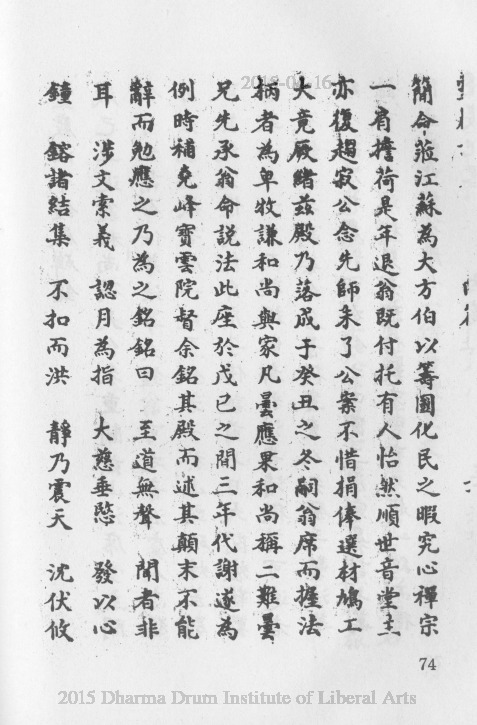 簡命蒞江蘇為大方伯以籌國化民之暇究心禪宗
一肩擔荷是年退翁既付托有人怡然順世音堂主
亦復趨寂公念先師未了公案不惜捐俸選材鳩工
大竟厥緒茲殿乃落成于癸丑之冬嗣翁席而握法
柄者為卑牧謙和尚與家凡曇應果和尚稱二難曇
兄先承翁命說法此座於戊己之間三年代謝遂為
例時補堯峰寶雲院督余銘其殿而述其顛末不能
辭而勉應之乃為之銘銘曰 至道無聲 聞者非
耳 涉文索義 認月為指 大慈垂愍 發以心
鐘 鎔諸結集 不扣而洪 靜乃震天 沈伏攸
74
2015 Dharma Drum Institute of Liberal Arts